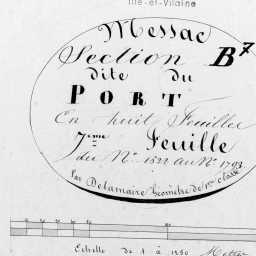 Ille-et-Vilaine
Messac
Section B⁷
dite du
PORT
En huit Feuilles
7.ème Feuille
du Nº 1522 au Nº 1793
Par Delamaire Géomètre de 1ère classe
Echelle de 1 à 1250